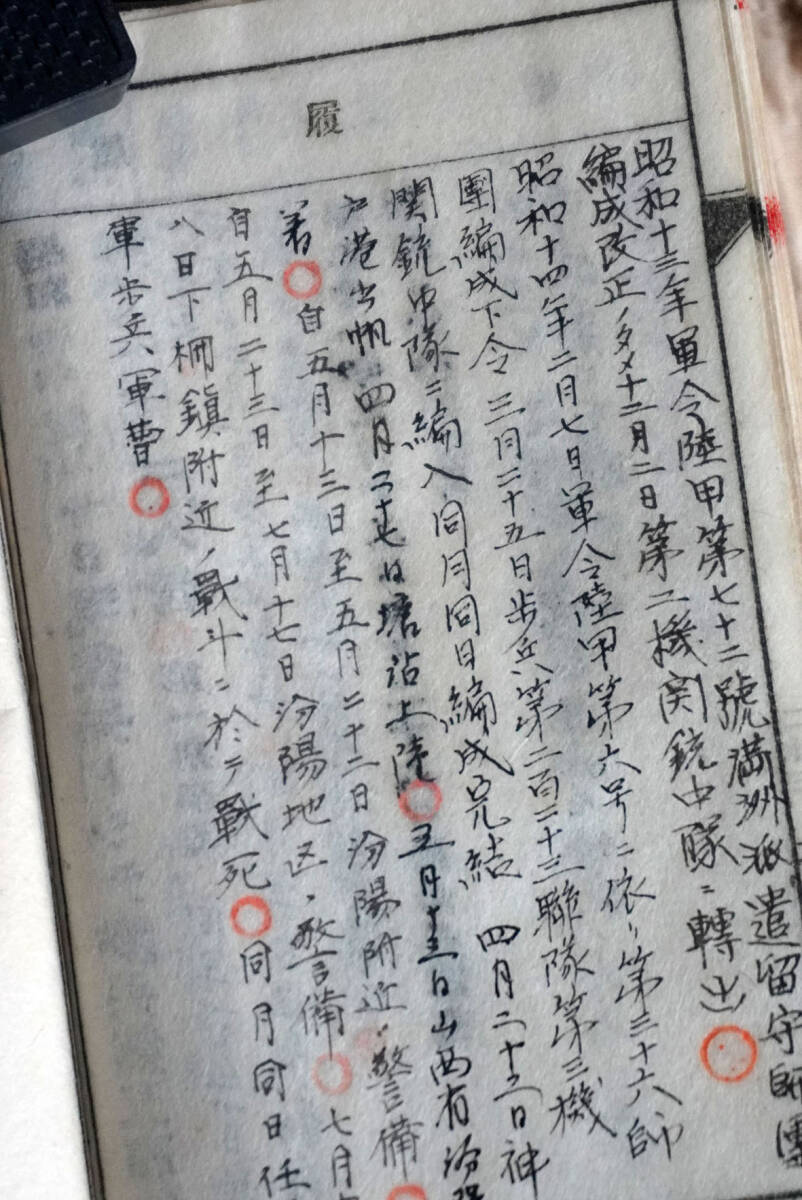 履
昭和十三年軍令陸甲第七十二號満洲派遣留守師團
編成改正ノタメ十二月二日第二機関銃中隊ニ轉出
昭和十四年二月七日軍令陸甲第六号ニ依リ第三十六師
團編成下令三月二十五日歩兵第二百二十三聯隊第三機
関銃中隊ニ編入同月同日編成完結 四月二十三日神
戸港出帆四月二十七日塘沽上陸 五月十三日山西省汾陽
着 自五月十三日至五月二十二日汾陽附近ノ警備
自五月二十三日至七月十七日汾陽地区ノ警備 七月
八日下柵鎮附近ノ戰斗ニ於テ戰死 同月同日任
軍歩兵軍曹